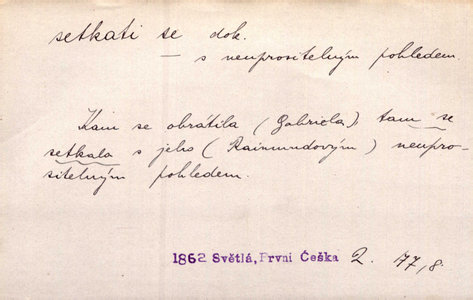 setkati se dok.
— s neuprositelným pohledem
Kam se obrátila (Gabriela) tam se
setkala s jeho (Raimundovým) neupro-
sitelným pohledem.
1862 Světlá, První Češka 2. 77,8.